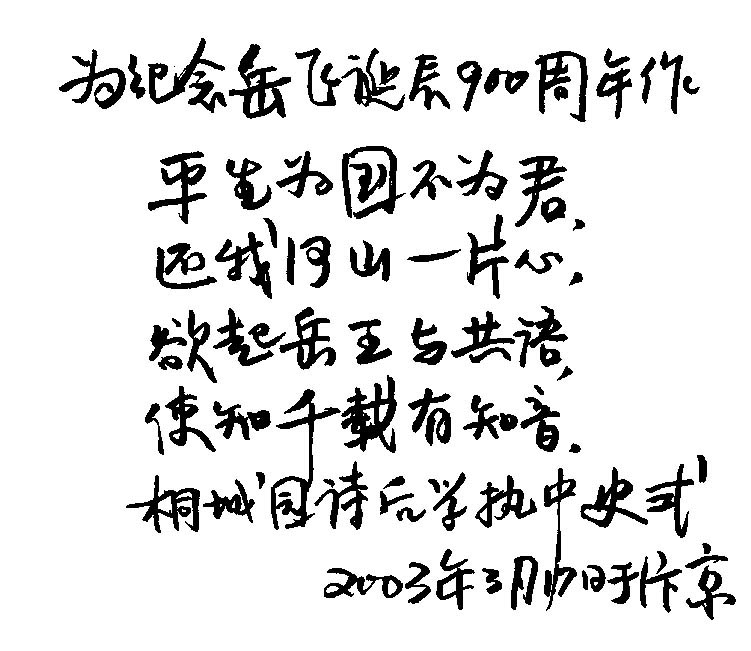 为纪念岳飞诞辰900周年作
平生为国不为君,
还我河山一片心,
欲起岳王与共语,
使知千载有知音.
桐城国诗后学执中史式
2003年3月17日于汴京